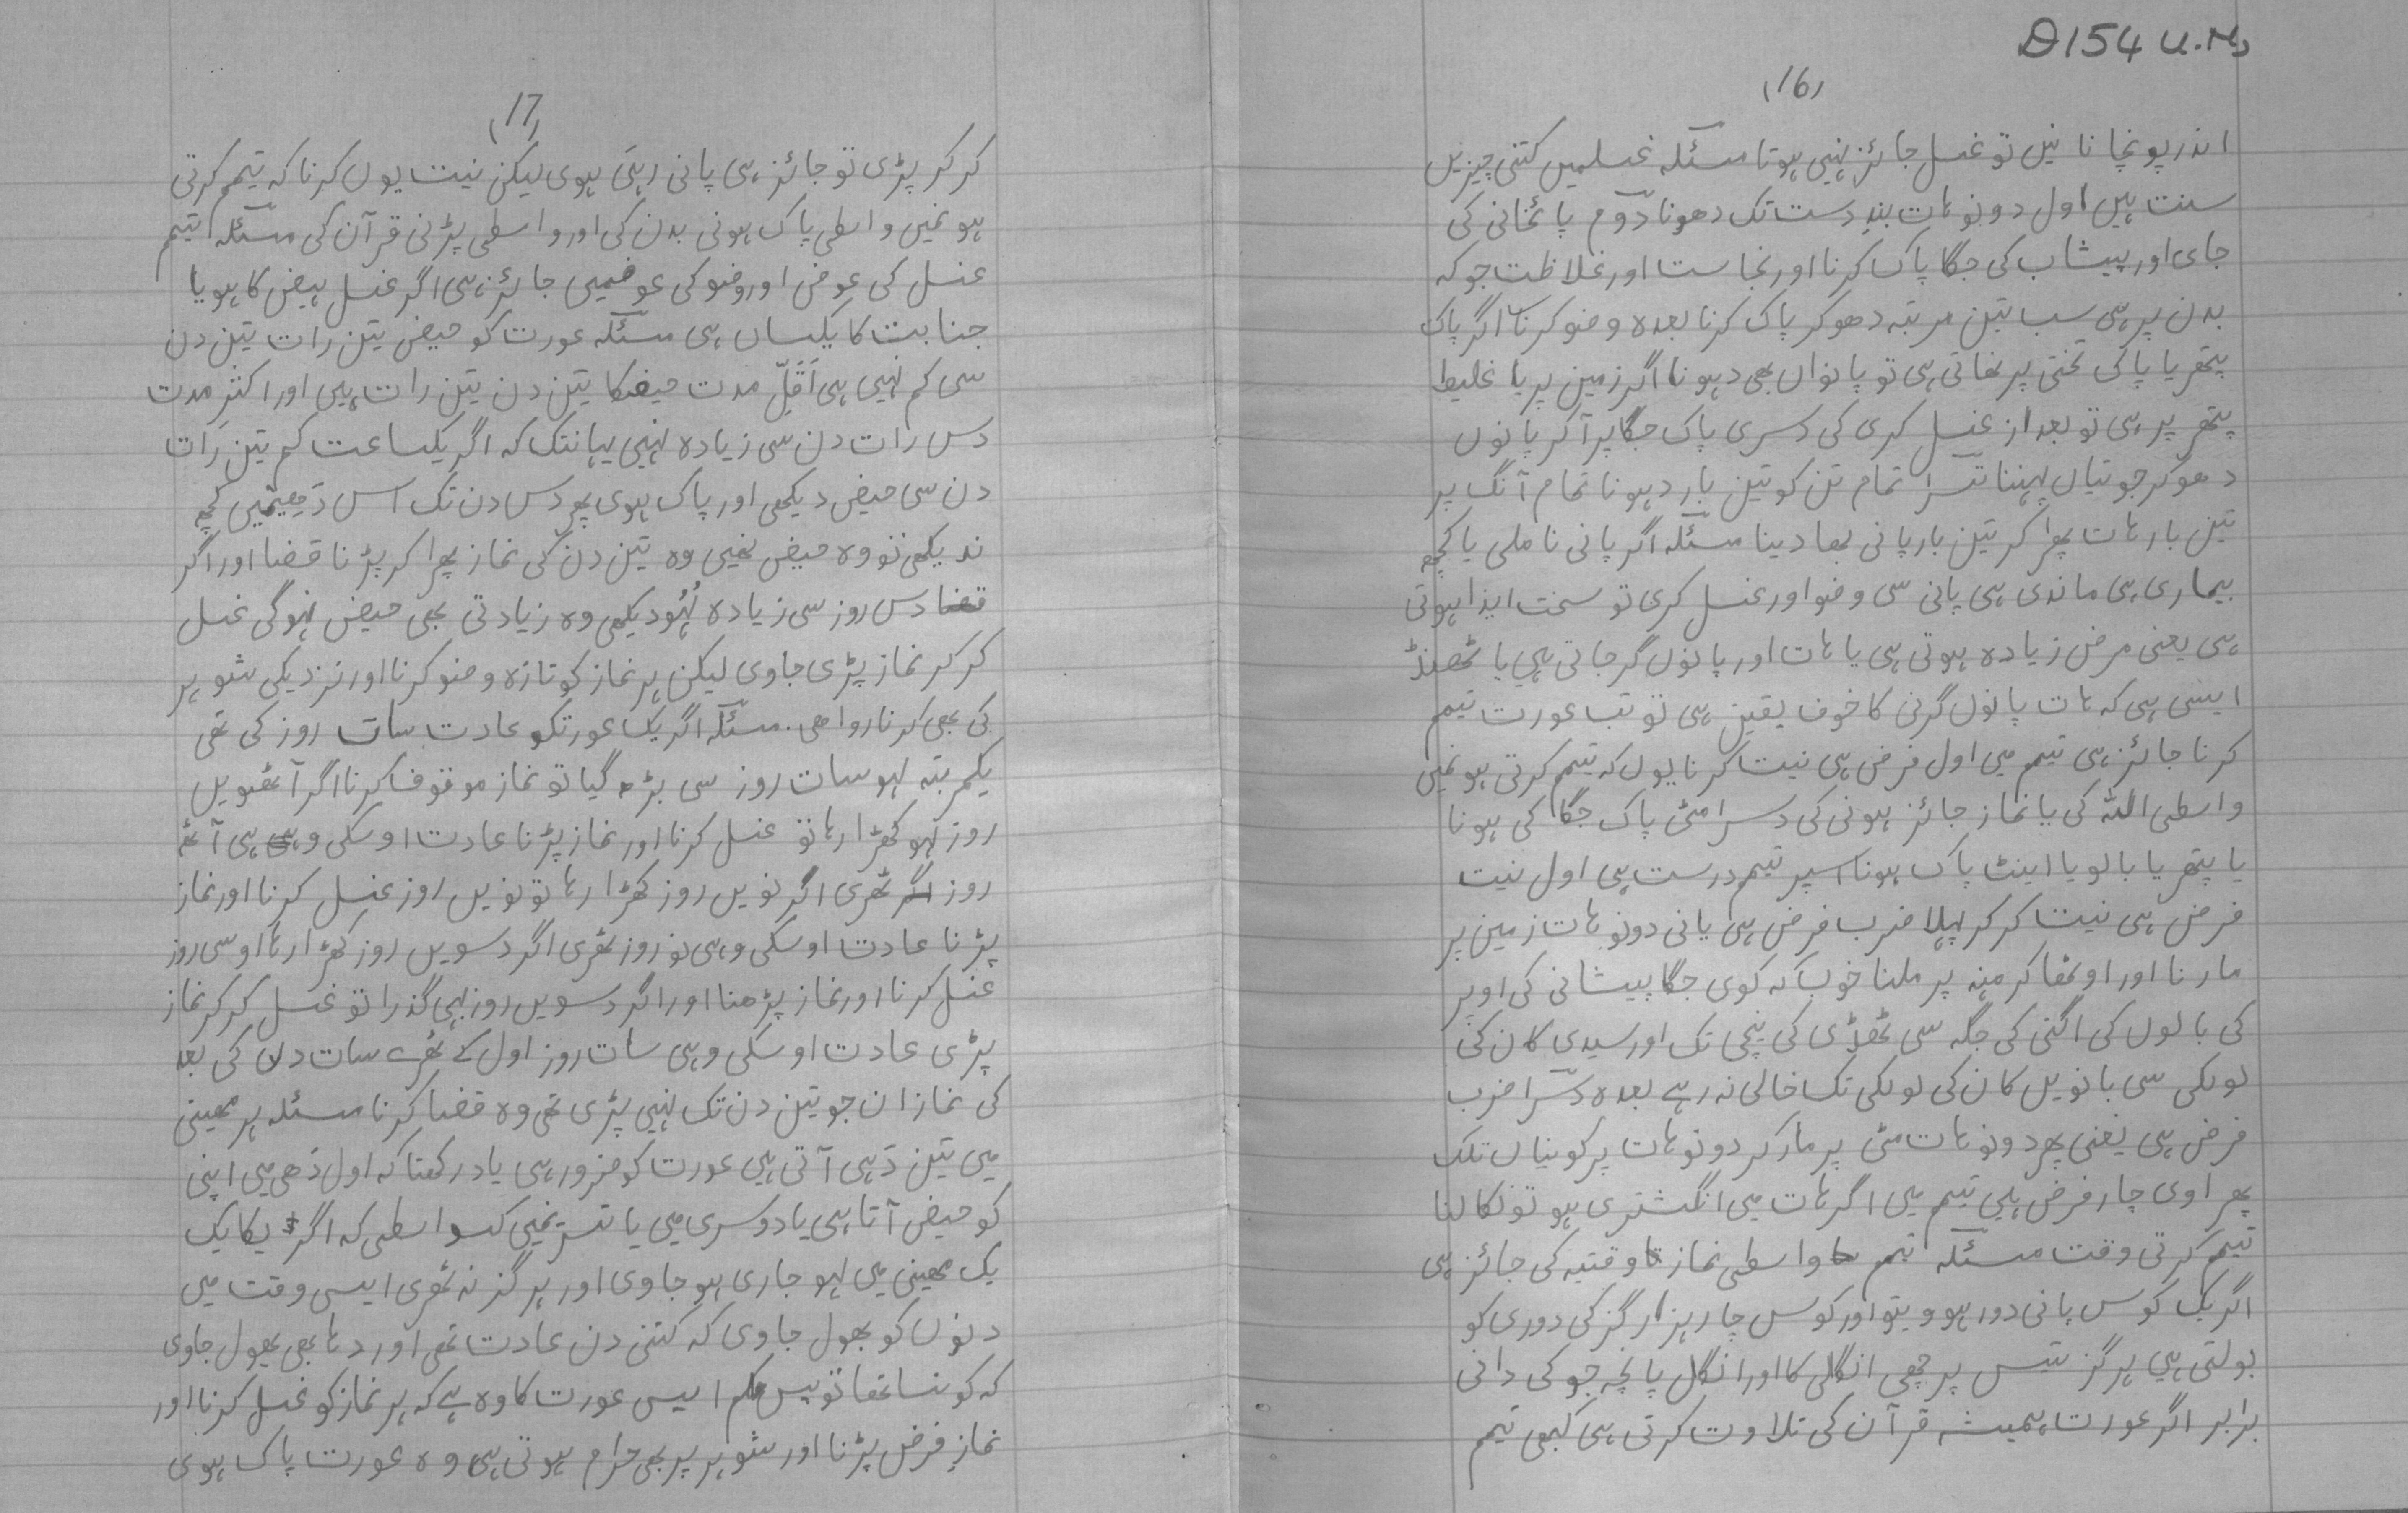 D154 U.M.
(16)
اندر پونچانا نیں تو غسل جائز نہیں ہوتا مسئلہ غسلمیں کتنی چیزیں
سنت ہیں اول دونو ہات بند دست تک دھونا دوم پائخانی کی
جای اور پیشاب کی جگا پاک کرنا اور نجاست اور غلاظت جو کہ
بدن پر ہی سب تین مرتبہ دھو کر پاک کرنا بعدہ وضو کرنا اگر پاک
پتھر یا پاک تختی پر نھاتی ہی تو پانواں بھی دہونا اگر زمین پر یا غلیط
پتھر پر ہی تو بعد از غسل کری کی دسری پاک جگا پر آکر پانوں
دھو کر جوتیاں پہننا تسرا تمام تن کو تین بار دہونا تمام آنگ پر
تین بار ہات پھرا کر تین بار پانی بھا دینا مسئلہ اگر پانی نا ملی یا کچھ
بیماری ہی ماندی ہی پانی سی وضو اور غسل کری تو سخت ایذا ہوتی
ہی یعنی مرض زیادہ ہوتی ہی یا ہات اور پانوں گر جاتی ہیں یا ٹھنڈ
ایسی ہی کہ ہات پانوں گرنی کا خوف یقین ہی تو تب عورت تیمم
کرنا جائز ہی تیمم میں اول فرض ہی نیت کرنا یوں کہ تیمم کرتی ہو نمیں
واسطی اللہ کی یا نماز جائز ہونی کی دسرا مٹی پاک جگا کی ہونا
یا پتھر یا بالو یا اینٹ پاک ہونا اسپر تیمم درست ہی اول نیت
فرض ہی نیت کر کر پہلا ضرب فرض ہی یانی دونو ہات زمین پر
مارنا اور اوٹھا کر منہ پر ملنا خوب کہ کوی جگا پیشانی کی اوپر
کی بالوں کی اگنی کی جگہ سی ٹھڈی کی نیچی تک اور سیدی کان کی
لولکی سی بانویں کان کی لولکی تک خالی نہ رہے بعدہ دسرا ضرب
فرض ہی یعنی پھر دونو ہات مٹی پر مار کر دونو ہات پر کونیاں تلک
پھراوی چار فرض ہیں تیمم میں اگر ہات میں انگشتری ہو تو نکالنا
تیمم کرتی وقت مسئلہ تیمم واسطی نماز وقتیہ کی جائز ہی
اگر یک کوس پانی دور ہوویتو اور کوس چار ہزار گز کی دوری کو
بولتی ہیں ہر گز تیس پر چھی انگلی کا اور انگل پانچہ جو کی دانی
برابر اگر عورت ہمیشہ قرآن کی تلاوت کرتی ہی کبھی تیمم
(17)
کر کر پڑی تو جائز ہی پانی رہتی ہوی لیکن نیت یوں کرنا کہ تیمم کرتی
ہو نمیں واسطی پاک ہونی بدن کی اور واسطی پڑنی قرآن کی مسئلہ تیمم
غسل کی عوض اور وضو کی عوضمیں جائز ہی اگر غسل ہیض کا ہو یا
جنابت کا یکساں ہی مسئلہ عورت کو حیض تین رات تین دن
سی کم نہیں ہی اَقَلِّ مدت حیضکا تین دن تین رات ہیں اور اکثر مدت
دس رات دن سی زیادہ نہیں یہانتک کہ اگر یکساعت کم تین رات
دن سی حیض دیکھی اور پاک ہوی پھر دس دن تک اس کچھ
ندیکھی تو وہ حیض نھیں وہ تین دن کی نماز پھرا کر پڑنا قضا اور اگر
دس روز سی زیادہ لُہُو دیکھی وہ زیادتی بھی حیض نہوگی غسل
کر کر نماز پڑی جاوی لیکن ہر نماز کو تازہ وضو کرنا اور نزدیکی شوہر
کی بھی کرنا روا ھی۔ مسئلہ اگر یک عورتکو عادت سات روز کی تھی
یکمرتبہ لہو سات روز سی بڑھ گیا تو نماز موقوف کرنا اگر آٹھویں
روز لہو کھڑا رہا تو غسل کرنا اور نماز پڑنا عادت اوسکی وہی ہی آٹھ
روز ٹھری اگر نویں روز کھڑا رہا تو نویں روز غسل کرنا اور نماز
پڑنا عادت اوسکی وہی نو روز ٹھری اگر دسویں روز کھڑا رہا اوسی روز
غسل کرنا اور نماز پڑھنا اور اگر دسویں روز بھی گذرا تو غسل کر کر نماز
پڑی عادت اوسکی وہی سات روز اول کے ٹھرے سات دن کی بعد
کی نمازان جو تین دن تک نہیں پڑی تھی وہ قضا کرنا مسئلہ ہر مھینی
میں تین دَہی آتی ہیں عورت کو ضرور ہی یاد رکھنا کہ اول دَھی میں اپنی
کو حیض آتا ہی یا دوسری میں یا تسریمیں کسواسطی کہ اگر یکایک
یک مھینی میں لہو جاری ہو جاوی اور ہر گز نہ ٹھری ایسی وقت میں
دنوں کو بھول جاوی کہ کتنی دن عادت تھی اور دہا بھی بھول جاوی
کہ کونسا تھا تو پس حکم ایسی عورت کا وہ ہے کہ ہر نماز کو غسل کرنا اور
نمازِ فرض پڑنا اور شوہر پر بھی حرام ہوتی ہی وہ عورت پاک ہوی